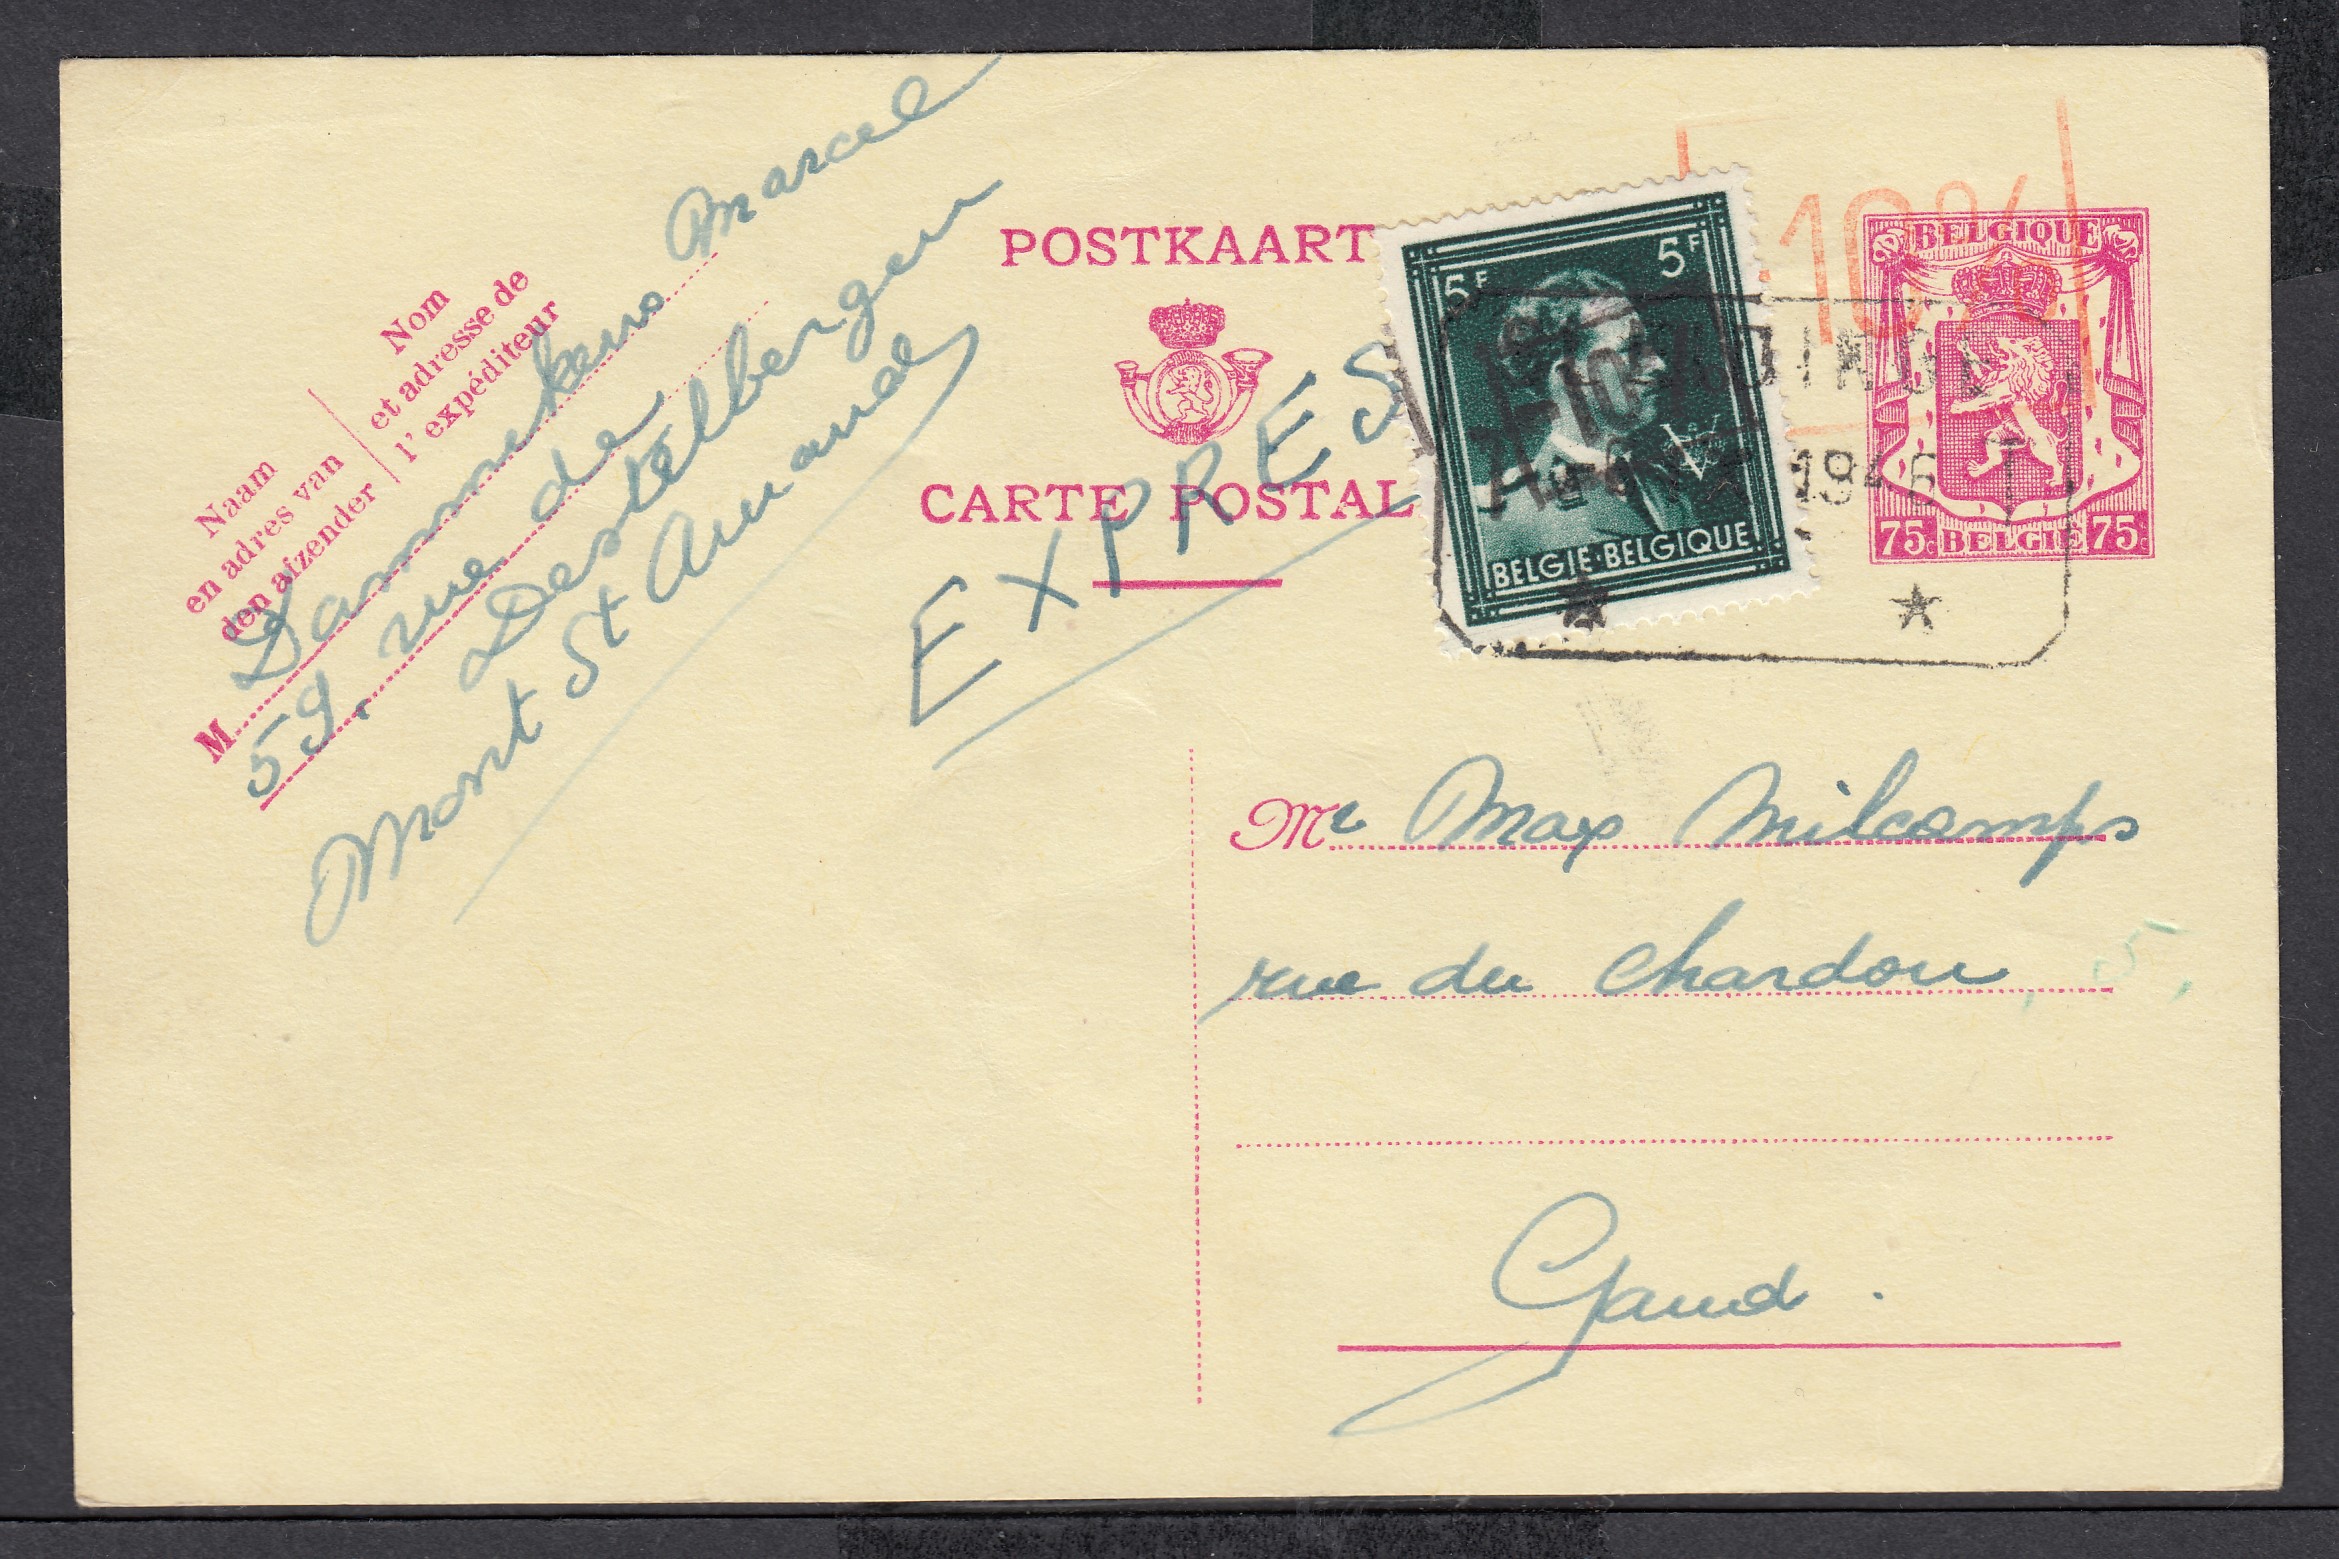 Nom
et adresse de
l' expéditeur
Naam
en adres van
den afzender
M Dammekens Marcel
59, rue de
Destelbergen
Mont St Amand
POSTKAART
CARTE POSTAL
EXPRES
5F 5F
-10%
BELGIE·BELGIQUE
-10%
BELGIQUE
75c BELGIE 75c
1946
Mr Max Milcamps
rue du Chardon
Gand.